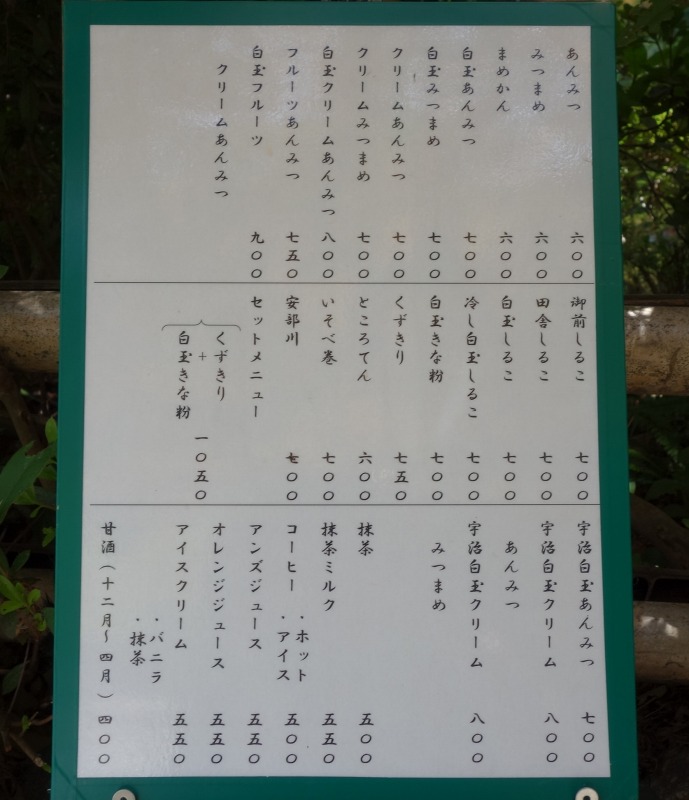 あんみつ 六〇〇
みつまめ 六〇〇
まめかん 六〇〇
白玉あんみつ 七〇〇
白玉みつまめ 七〇〇
クリームあんみつ 七〇〇
クリームみつまめ 七〇〇
白玉クリームあんみつ 八〇〇
フルーツあんみつ 七五〇
白玉フルーツ 九〇〇
クリームあんみつ
御前しるこ 七〇〇
田舎しるこ 七〇〇
白玉しるこ 七〇〇
冷し白玉しるこ 七〇〇
白玉きな粉 七〇〇
くずきり 七五〇
ところてん 六〇〇
いそべ巻 七〇〇
安部川 七〇〇
セットメニュー
くずきり
+
白玉きな粉
一〇五〇
宇治白玉あんみつ 七〇〇
宇治白玉クリーム 八〇〇
あんみつ
宇治白玉クリーム 八〇〇
みつまめ
抹茶 五〇〇
抹茶ミルク 五五〇
コーヒー ・ホット 五〇〇
・アイス
アンズジュース 五五〇
オレンジジュース 五五〇
アイスクリーム 五五〇
・バニラ
・抹茶
甘酒(十二月〜四月) 四〇〇